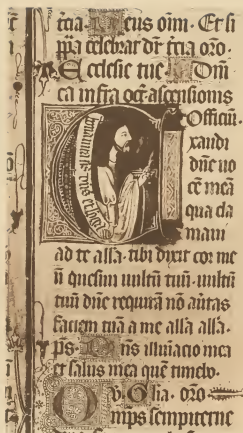 tcia. Deus oim. Et si
ppa celebrat dr tcia oro.
Ecclesie tue Dom
ca infra oct ascensionis
Officiu.
Exaudi
dne uo
ce mea
qua cla
maui
ad te alla. tibi dixit cor me
u quesiui uultu tuu. uultu
tuu dne requira no auertas
faciem tua a me alla alla.
ps. Dns illuiacio mea
et salus mea que timebo.
Oro
mps sempiterne